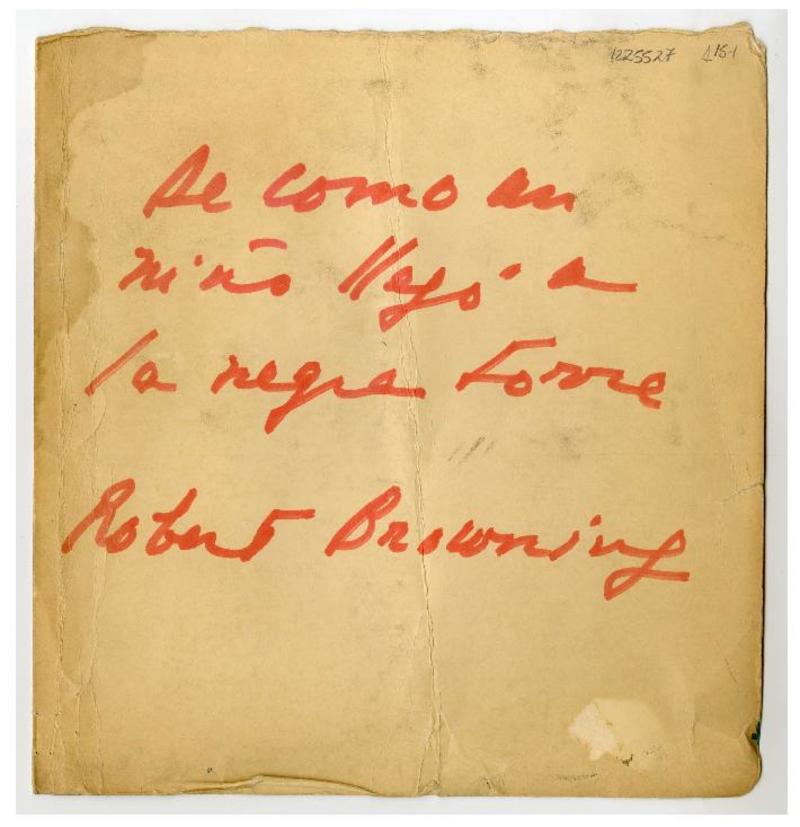 1225527 A15-1
De como un
niño llegó a
la negra torre
Robert Browning